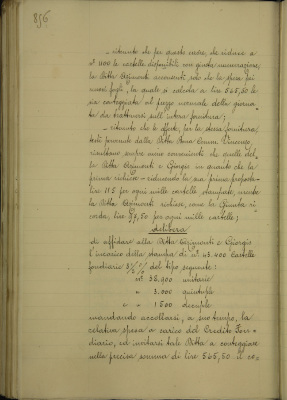 856
- ritenuto che per questo verso, che riduce a
n° 400 le cartelle disponibili con giusta numerazione,
la Ditta acconsentì, solo che la spesa pei
nuovi fogli, la quale si calcola a lire 565,50 le
sia conteggiata al prezzo normale della giorna-
ta da trattenersi sull'intera fornitura;
- ritenuto che le offerte, per la stessa fornitura,
della Ditta
risultano anche meno convenienti di quelle del-
la Ditta e Giorgio in quanto che la
prima richiese - riducendo la sua prima proposta -
lire 115 per ogni mille cartelle stampate, mentre
la Ditta richiese, come la Giunta ri-
corda, lire ,50 per ogni mille cartelle;
delibera
di affidare alla Ditta e Giorgio
l'incarico della stampa di n° 43.400 Cartelle
fondiarie 3½ % del tipo seguente:
n° 38.900 unitarie
" 3.000 quintuple
" " 1500 decuple
mandando accollarsi, a suo tempo, la
relativa spesa a carico del Credito Fon-
diario, ed invitarsi tale Ditta a conteggiare
nella precisa somma di lire 565,50 il co-